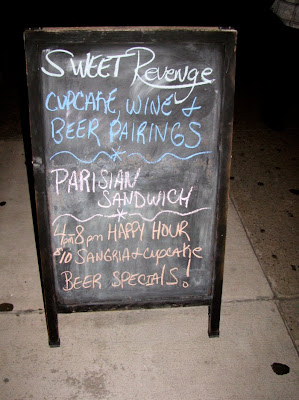 SWEET Revenge
CUPCAKE, WINE &
BEER PAIRINGS
PARISIAN
SANDWICH
4pm 8pm HAPPY HOUR
$10 SANGRIA & CUPCAKE
BEER SPECIALS!